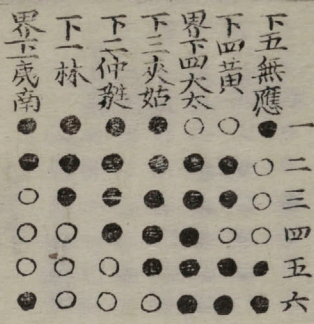 下五無應
下四黃
界下四大太
下三夾姑
下二仲蕤
下一林
界下一夷南
一
二
三
四
五
六